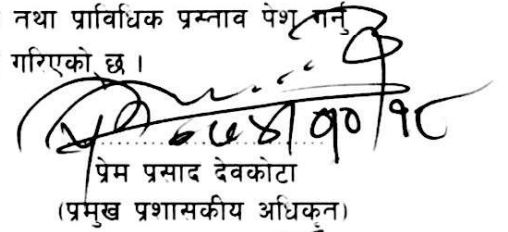 तथा प्राविधिक प्रस्ताव पेश गर्नु
गरिएको छ।
प्रेम प्रसाद देवकोटा
(प्रमुख प्रशासकीय अधिकृत)